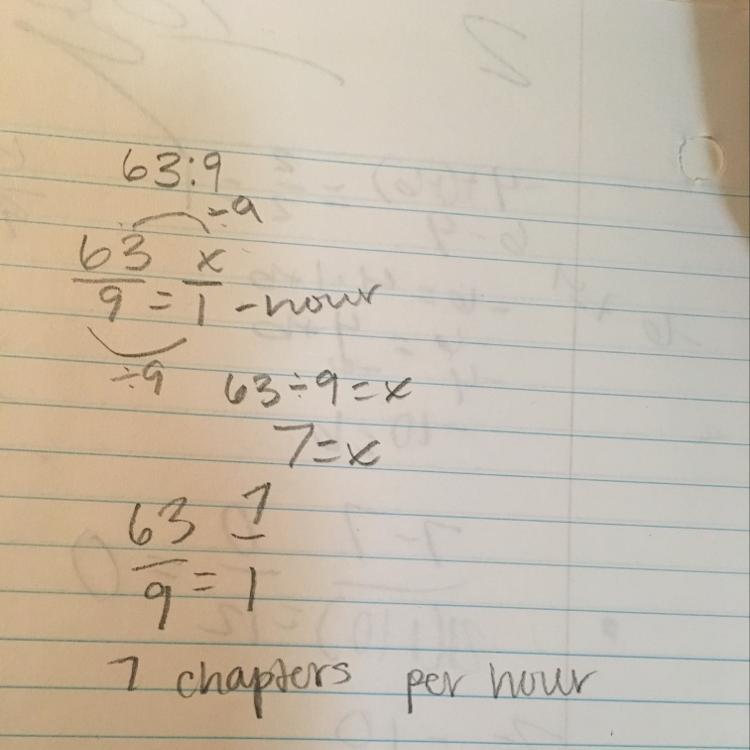 63:9
÷9
63 x
9 = 1 - hour
÷9 63÷9=x
7=x
63 7
9 = 1
7 chapters per hour